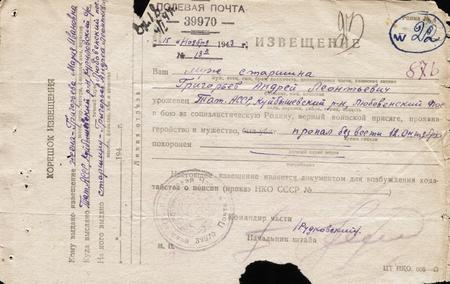 ПОЛЕВАЯ ПОЧТА
39970
№ 22
15 Ноября 1943 г.
ИЗВЕЩЕНИЕ
№ 138
87б
Ваш муж старшина
Григорьев Андрей Леонтьевич
уроженец Тат. АССР, Куйбышевский р-н,
в бою за социалистическую Родину, верный воинской присяге, проявив
геройство и мужество, был убит пропал без вести Октября
похоронен
Настоящее извещение является документом для возбуждения хода-
тайства о пенсии (приказ НКО СССР №
Командир части
Рудковский
Начальник штаба
М. П.
КОРЕШОК ИЗВЕЩЕНИЯ
Кому выдано извещение Жена - Григорьева Мария Ивановна
Куда выслано Тат. АССР, Куйбышевский р-н
На кого выдано старшина - Григорьев Андрей Леонтьевич
194 г.
Линия отреза